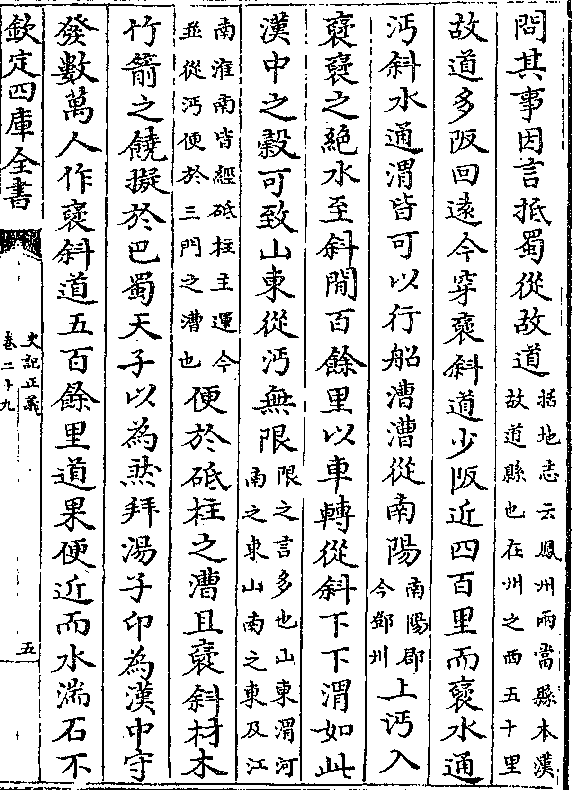 問其事因言抵蜀從故道括地志云鳳州兩當縣本漢故道縣也在州之西五十里
故道多阪回逺今穿襃斜道少阪近四百里而襃水通
沔斜水通渭皆可以行船漕漕從南陽南陽郡今鄧州上沔入
襃襃之絶水至斜間百餘里以車轉從斜下下渭如此
漢中之榖可致山東從沔無限限之言多也山東渭河南之東山南之東及江
南淮南皆經砥柱主運今並從沔便於三門之漕也便於砥柱之漕且襃斜材木
竹箭之饒擬於巴蜀天子以為然拜湯子卬為漢中守
發數萬人作襃斜道五百餘里道果便近而水湍石不
欽定四庫全書
史記正義
卷二十九
五